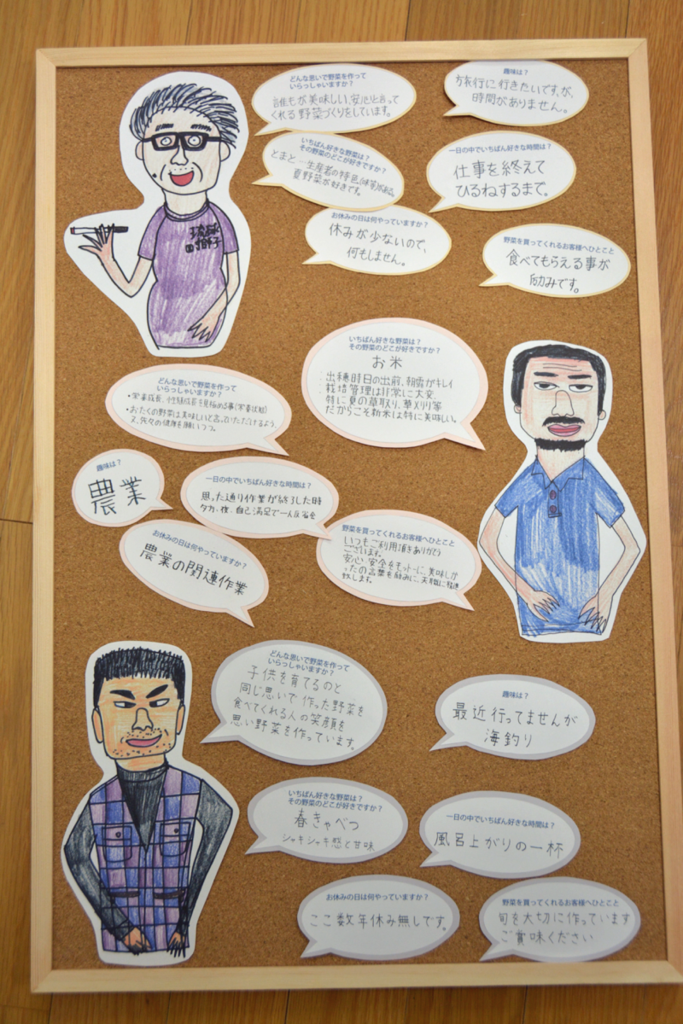 どんな思いで野菜を作って
いらっしゃいますか?
誰もが美味しい、安心と言って
くれる野菜づくりをしています。
趣味は?
旅行に行きたいですが、
時間がありません。
いちばん好きな野菜は?
その野菜のどこが好きですか?
とまと
夏野菜が好きです。
一日の中でいちばん好きな時間は?
仕事を終えて
ひるねするまで。
お休みの日は何やっていますか?
休みが少ないので、
何もしません。
野菜を買ってくれるお客様へひとこと
食べてもらえる事が
励みです。
いちばん好きな野菜は?
その野菜のどこが好きですか?
お米
出穂時日の出前、朝露がキレイ
栽培管理は非常に大変
特に夏の草取り、草刈り等
だからこそ新米は特に美味しい。
どんな思いで野菜を作って
いらっしゃいますか?
・おたくの野菜は美味しいと言っていただけるよう
又、先々の健康を願いつつ。
趣味は?
農業
一日の中でいちばん好きな時間は?
思った通り作業が終了した時
夕方・夜、自己満足で一人反省会
お休みの日は何やっていますか?
農業の関連作業
野菜を買ってくれるお客様へひとこと
いつもご利用頂きありがとう
ございます。
安心安全をモットーに、美味しか
ったの言葉を励みに、
致します。
どんな思いで野菜を作って
いらっしゃいますか?
子供を育てるのと
同じ思いで作った野菜を
食べてくれる人の笑顔を
思い野菜を作っています。
趣味は?
最近行ってませんが
海釣り
いちばん好きな野菜は?
その野菜のどこが好きですか?
春きゃべつ
シャキシャキ感と甘味
一日の中でいちばん好きな時間は?
風呂上がりの一杯
お休みの日は何やっていますか?
ここ数年休み無しです。
野菜を買ってくれるお客様へひとこと
旬を大切に作っています
ご賞味ください